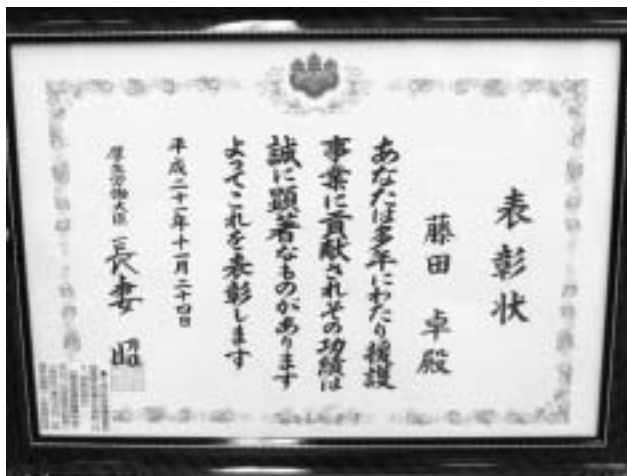 表彰状
藤田 卓殿
あなたは多年にわたり援護
事業に貢献されその功績は
誠に顕著なものがあります
よってこれを表彰します
平成二十一年十一月二十四日
厚生労働大臣 長妻 昭